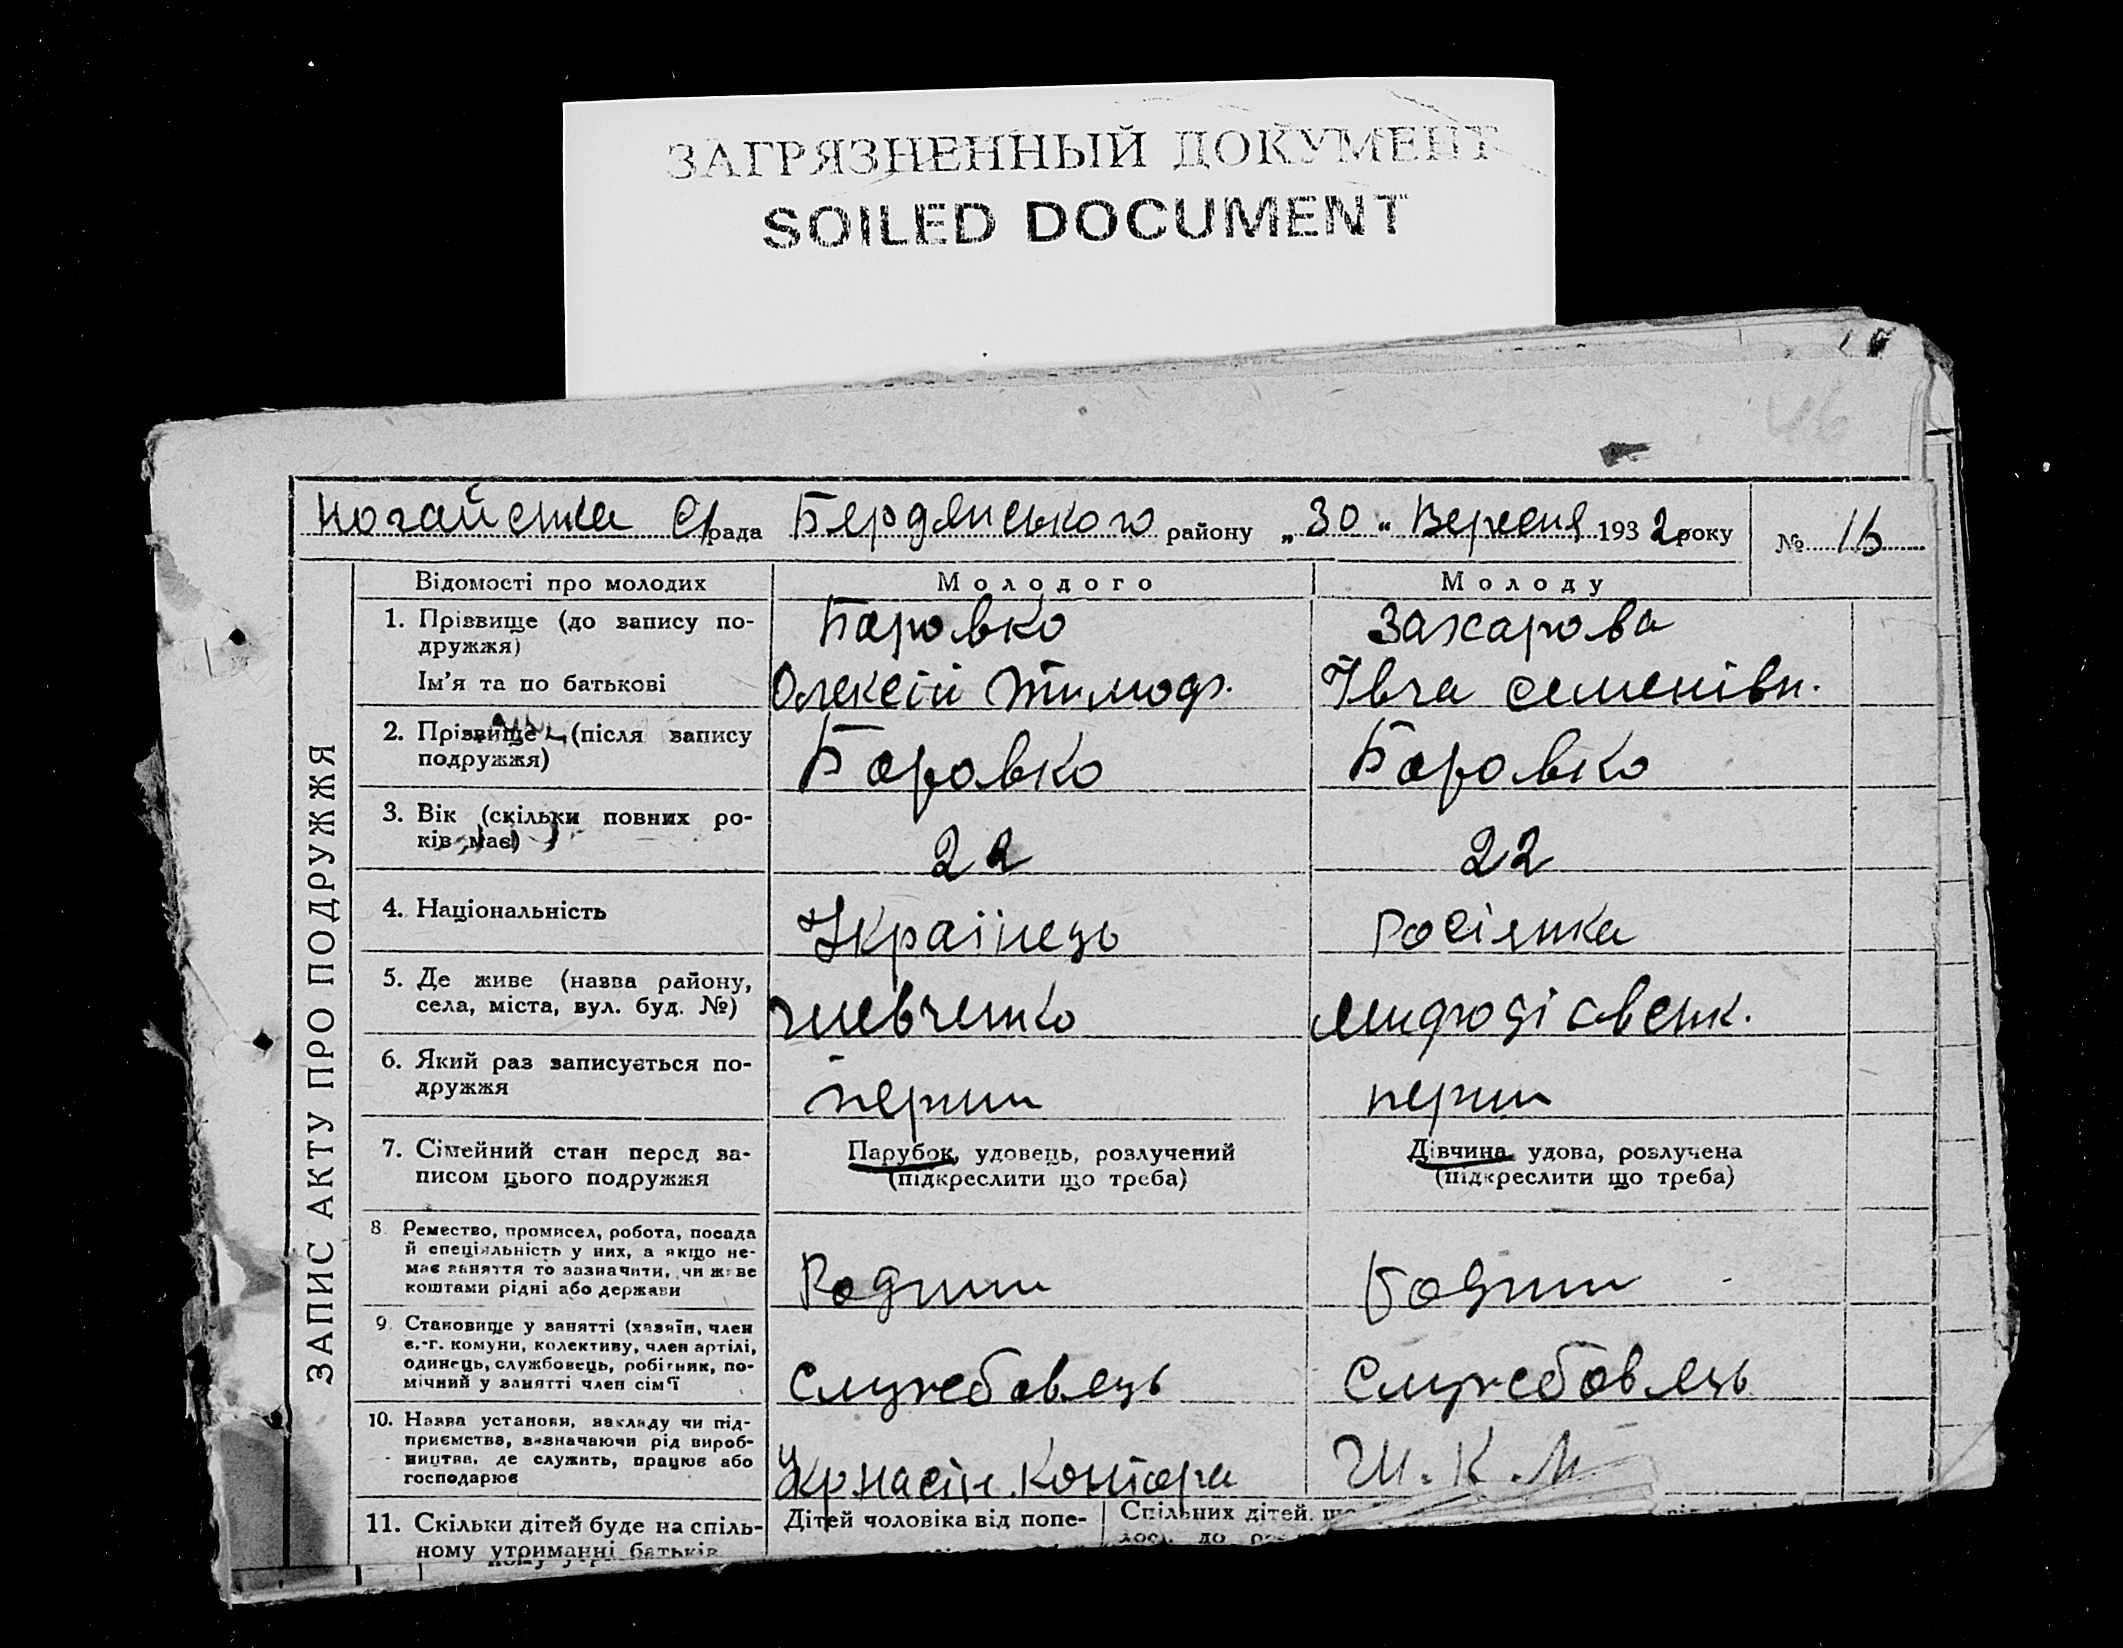 ЗАГРЯЗНЕННЫЙ ДОКУМЕНТ
SOILED DOCUMENT
46
Ногайська С/рада Бердянського району „30" Вересня 1932 року № 16
ЗАПИС АКТУ ПРО ПОДРУЖЖЯ
Відомості про молодих Молодого Молоду
1. Прізвище (до запису по- Боровко Захарова
дружжя)
Ім'я та по батькові Олексій Тимоф. Івга Семенівн.
2. Прізвище (після запису Боровко Боровко
подружжя)
3. Вік (скільки повних ро- 22 22
ків має)
4. Національність Українець Росіянка
5. Де живе (назва району, Шевченко
села, міста, вул. буд. №)
6. Який раз записується по- перши перши
дружжя
7. Сімейний стан перед за- Парубок, удовець, розлучений Дівчина, удова, розлучена
писом цього подружжя (підкреслити що треба) (підкреслити що треба)
8. Ремество, промисел, робота, посада
й спеціяльність у них, а якщо не-
має заняття то зазначити, чи живе
коштами рідні або держави
9. Становище у занятті (хазяїн, член Служебовець Служебовець
с.-г. комуни, колективу, член артілі,
одинець, службовець, робітник, по-
мічний у занятті член сім'ї
10. Назва установи, закладу чи під- Укрнасін. Контора Ш.К.М
приємства, зазначаючи рід вироб-
ництва, де служить, працює або
господарює
11. Скільки дітей буде на спіль- Дітей чоловіка від попе- Спільних дітей,
ному утриманні батьків